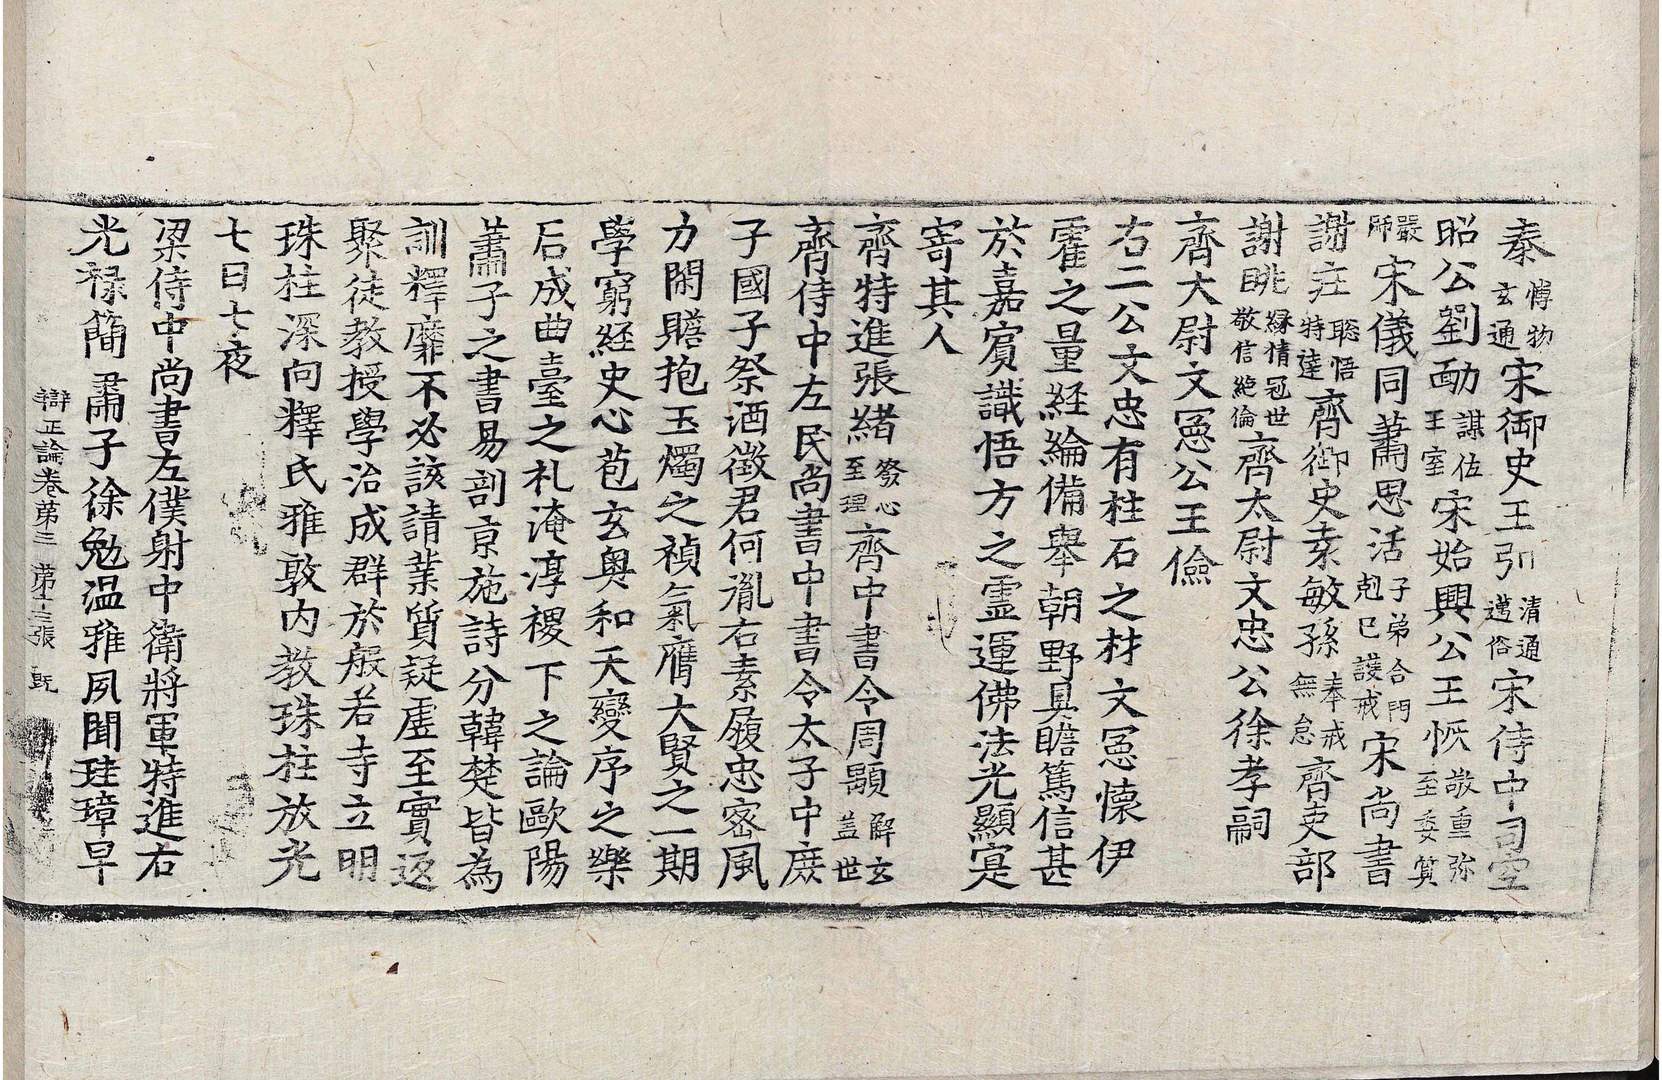 秦博物玄通宋御史王引清通邁俗宋侍中司空
昭公劉勔謀佐王室宋始興公王恢敬重弥至委筭
嚴師宋儀同蕭思活子弟合門剋已護戒宋尚書
謝庄聡悟特達齊御史袁敏孫奉戒無怠齊吏部
謝眺縁情冠世敬信絶倫齊太尉文忠公徐孝嗣
齊大尉文憲公王儉
右二公文忠有柱石之材文憲懷伊
霍之量經綸備舉朝野具瞻篤信甚
於嘉賓識悟方之霊運佛法光顯寔
寄其人
齊特進張緒發心至理齊中書令周顒解玄蓋世
齊侍中左民尚書中書令太子中庶
子國子祭酒徵君何胤右素履忠宻風
力閑贍抱玉燭之禎氣膺大賢之一期
學窮經史心苞玄奥和天變序之樂
后成曲臺之札淹淳稷下之論歐陽
蕭子之書易剖京施詩分韓楚皆為
訓釋靡不必該請業質疑虛至實返
聚徒教授學洽成群於般若寺立明
珠柱深向釋氏雅敦内教珠柱放光
七日七夜
梁侍中尚書左僕射中衛將軍特進右
光禄簡肅子徐勉温雅夙聞珪璋早
辯正論卷苐三 苐十三張 既